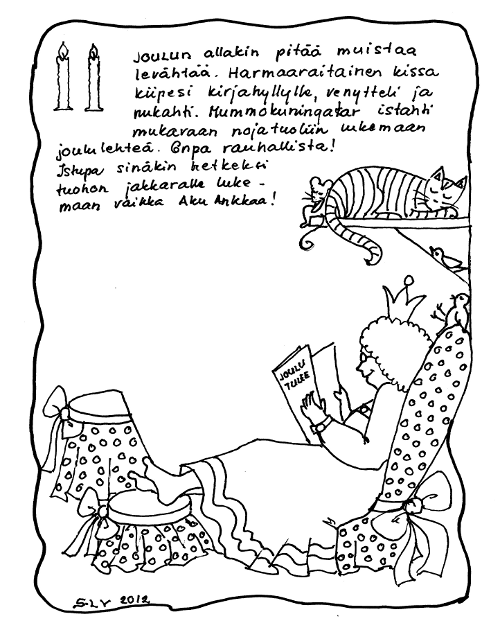 11
JOULUN allakin pitää muistaa
levähtää. Harmaaraitainen kissa
kiipesi kirjahyllylle, venytteli ja
nukahti. Mummokuningatar istahti
mukavaan nojatuoliin lukemaan
joululehteä. Onpa rauhallista!
Istupa sinäkin hetkeksi
tuohon jakkaralle luke-
maan vaikka Aku Ankkaa!
JOULU
TULEE
S.LV 2012